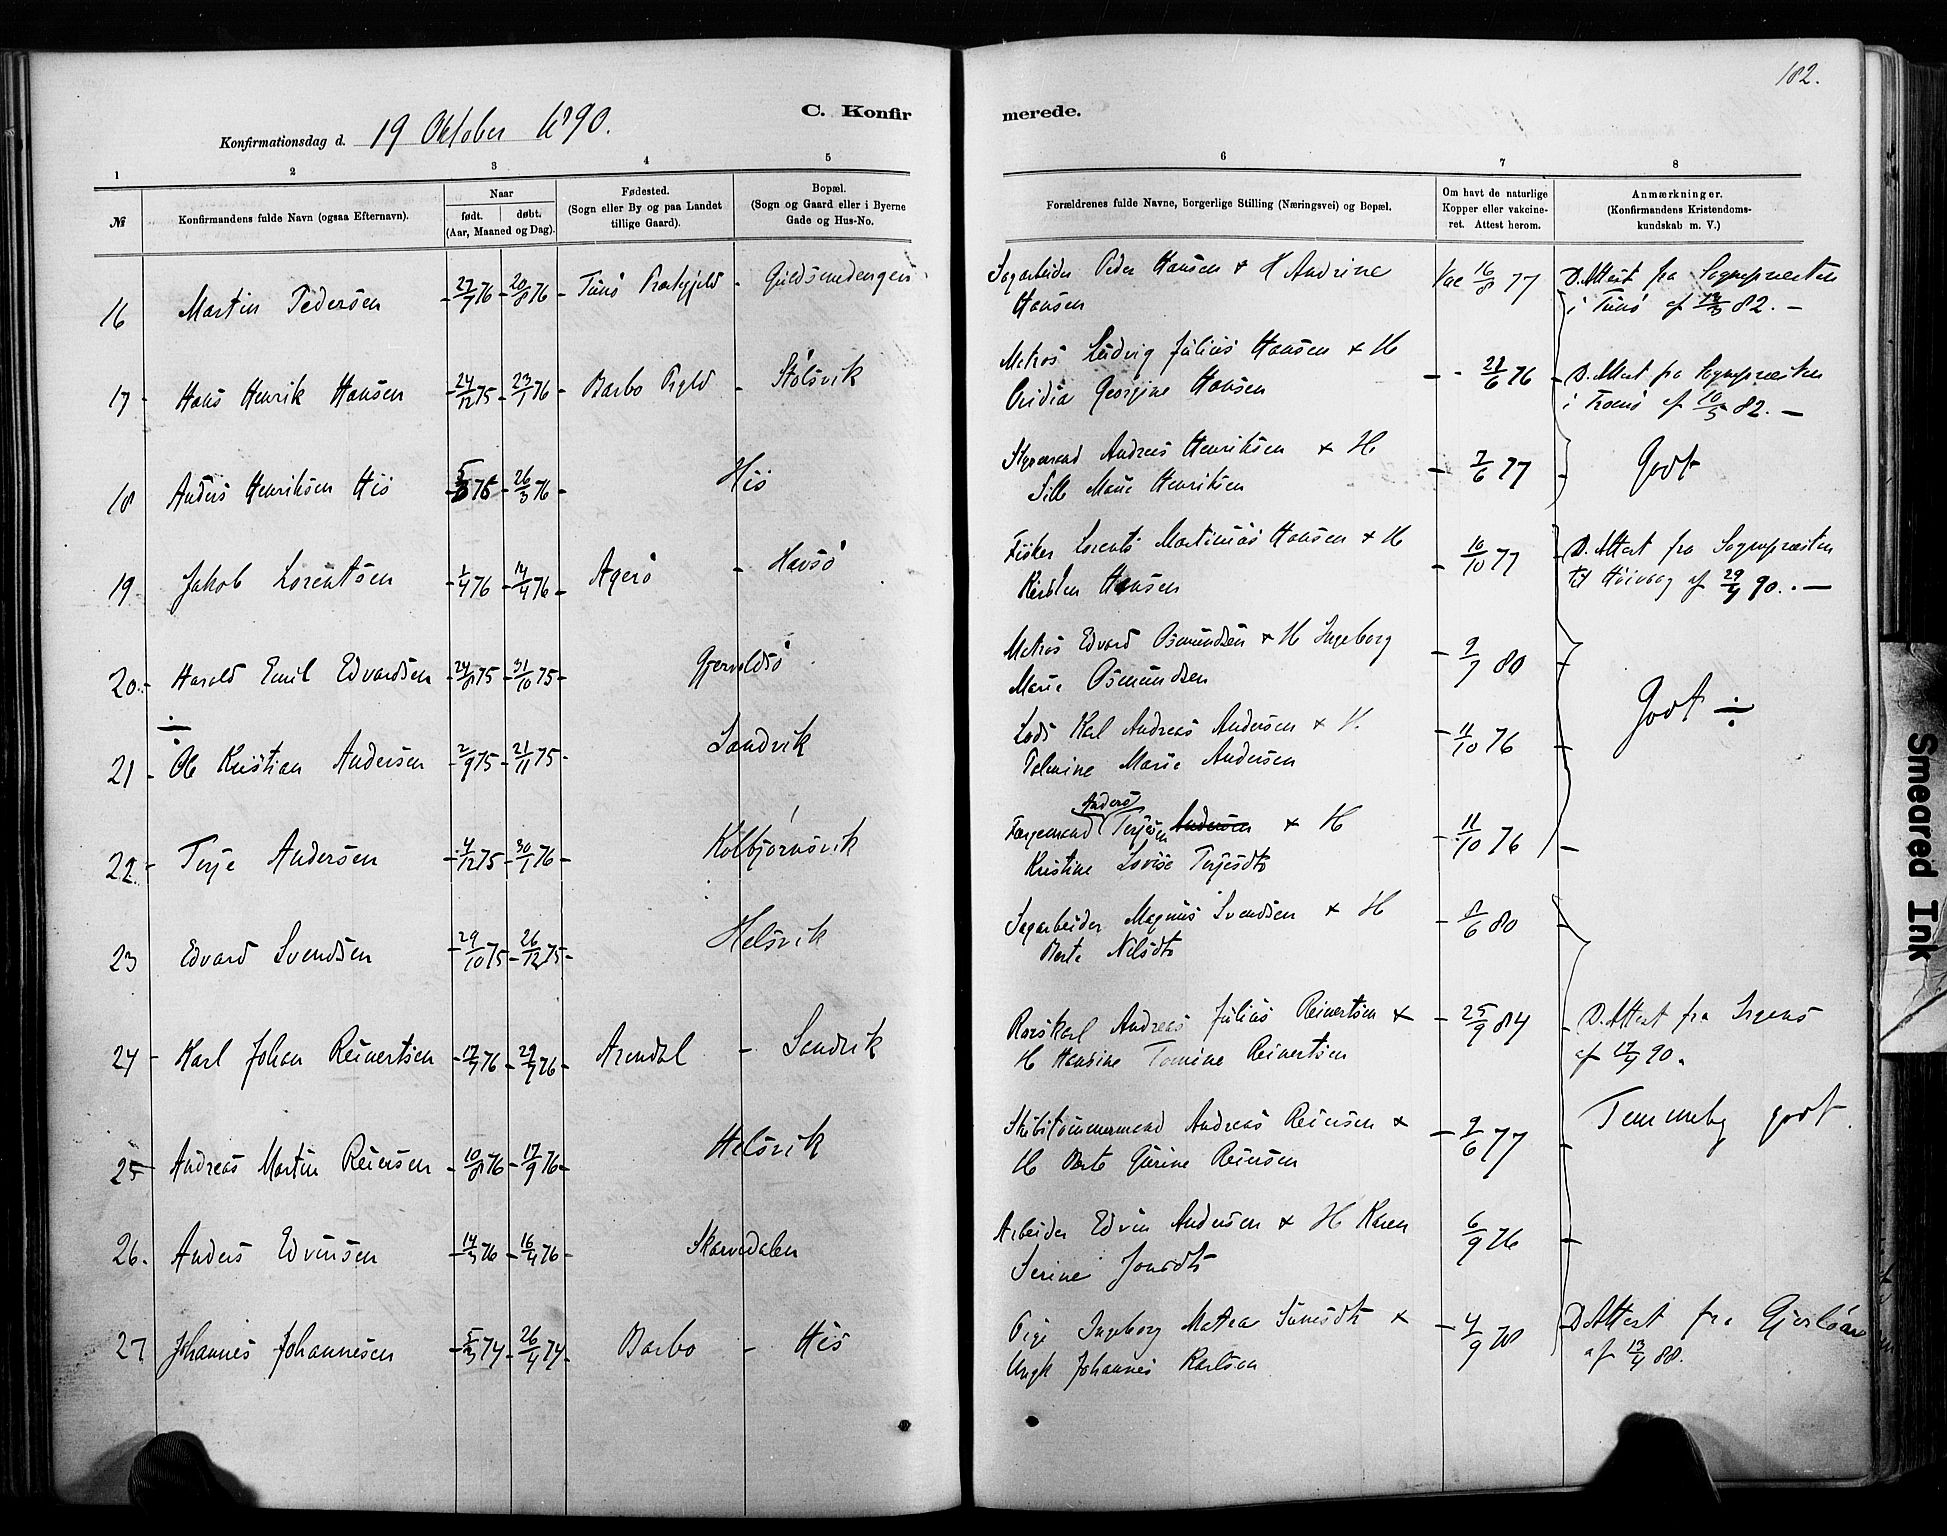 182.
C. Konfirmerede.
Konfirmationsdag d. 19 Oktober 1890.
1 2 3 4 5 6 7 8
№
Konfirmandens fulde Navn (ogsaa Efternavn).
Naar
født. døbt.
(Aar, Maaned og Dag).
Fødested.
(Sogn eller By og paa Landet
tillige Gaard).
Bopæl.
(Sogn og Gaard eller i Byerne
Gade og Hus-No.
Forældrenes fulde Navne, borgerlige Stilling (Næringsvei) og Bopæl.
Om havt de naturlige
Kopper eller vakcine-
ret. Attest herom.
Anmærkninger.
(Konfirmandens Kristendoms-
kundskab m. V.)
16 Martin Pedersen 20/8 76 Guldsmedengen Sagarbeider Peder Hansen + H Andrine
Hansen Vac 16/8 77 D. Attest fra Sognepræsten
i 82. —
17 Hans Henrik Hansen 24/12 75 23/1 76 Barbo Stølsvik Matros Ludvig Julius Hansen + H
Georgine Hansen 6 76 D. Attest fra Sognepræsten
i Tromø af 10/5 82. —
18 Anders Henriksen His 26/3 76 His Andreas Henriksen + H
Sille Marie Henriksen 2/6 77 Godt
19 Jakob Lorentsen 1/4 76 14/4 76 Agerø Havsø Fisker Lorents Martinius Hansen + H
Kirsten Hansen 10/10 77 D. Attest fra Sognepræsten
til Høivaag af 29/9 90. —
20. Harald Emil Edvardsen 24/8 75 31/10 75 Gjervoldsø Matros Edvard Osmundsen + H Ingeborg
Marie Osmundsen 9/7 80
Godt ÷
÷
21 Ole Kristian Andersen 2/9 75 21/11 75 Sandvik Lods Karl Andreas Andersen + H.
Talmine Marie Andersen 11/10 76
22. Terje Andersen 4/12 75 30/1 76 Kolbjørnsvik Færgemand Anders Terjesen Andersen + H
Kristine Lovise Terjesdtr 11/10 76
23 Edvard Svendsen 29/10 75 26/12 75 Helsvik Sagarbeider Magnus Svendsen + H
Berte Nilsdtr 6 80
24 Karl Johan Reinertsen 76 Arendal Sandvik Andreas Julius Reinertsen +
H Hansine Tomine Reinertsen 25/9 84 D. Attest fra
af 17/9 90.
25 Andreas Martin Reiersen 10/8 76 17/9 76 Helsvik Skibstømmermand Andreas Reiersen +
H Berte Gurine Reiersen 2/6 77 Temmelig godt
26. Anders Edvinsen 14/3 76 16/4 76 Skarvedalen Arbeider Edvin Andersen + H Karen
Serine Jonsdtr 6/9 76
27 Johannes Johannesen 5/3 74 26/4 74 Barbo His Pige Ingeborg Matea +
Ungk Johannes Karlsen 4/9 D. Attest fra
af 13/4 88.
Smeared Ink